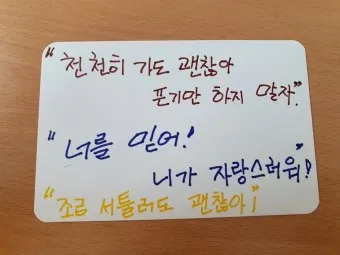 "천천히 가도 괜찮아
포기만 하지 말자."
"너를 믿어!
니가 자랑스러워!"
"조금 서툴러도 괜찮아!"